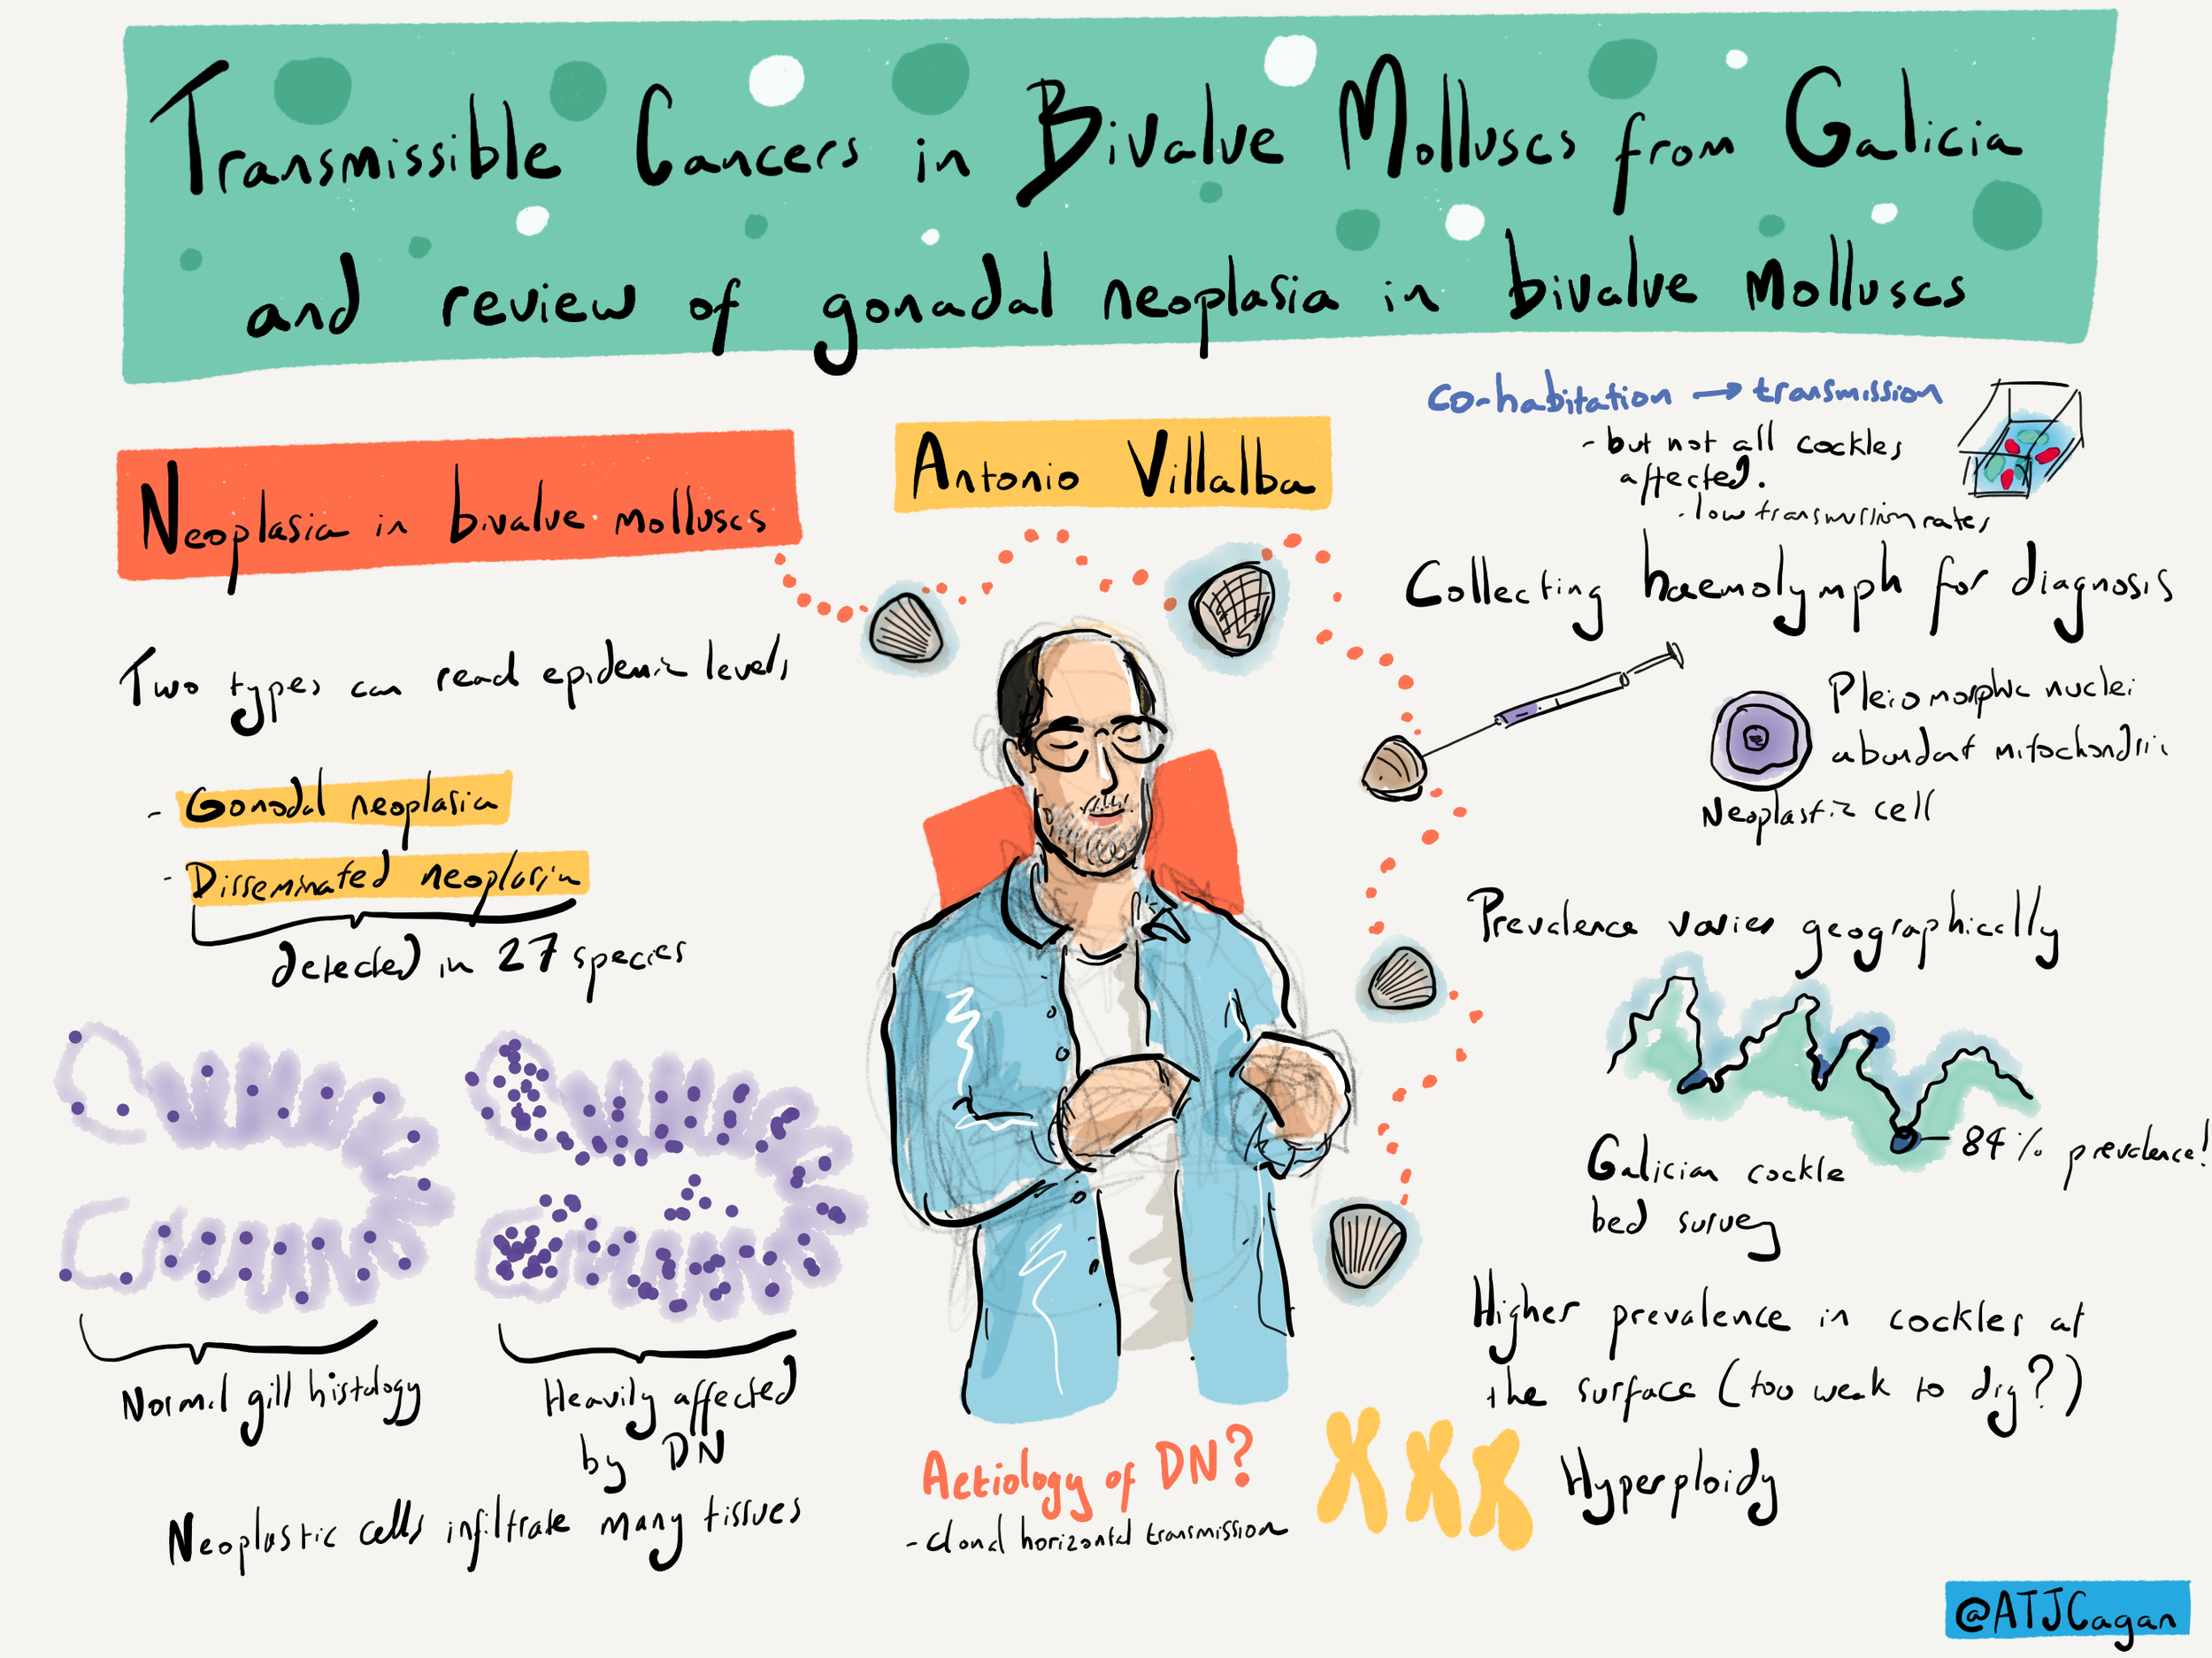 Transmissible Cancers in Bivalve Molluscs from Galicia
and review of gonadal neoplasia in bivalve molluscs
Neoplasia in bivalve molluscs
Two types can read epidemic levels
- Gonadal neoplasia
- Disseminated neoplasia
detected in 27 species
Normal gill histology
Heavily affected
by DN
Neoplastic cells infiltrate many tissues
Antonio Villalba
Aetiology of DN?
- clonal horizontal transmission
co-habitation → transmission
- but not all cockles
affected.
- low transmission rates
Collecting haemolymph for diagnosis
Pleiomorphic nuclei
abundant mitochondria
Neoplastic cell
Prevalence varies geographically
84% prevalence!
Galician cockle
bed survey
Higher prevalence in cockles at
the surface (too weak to dig?)
Hyperploidy
@ATJCagan